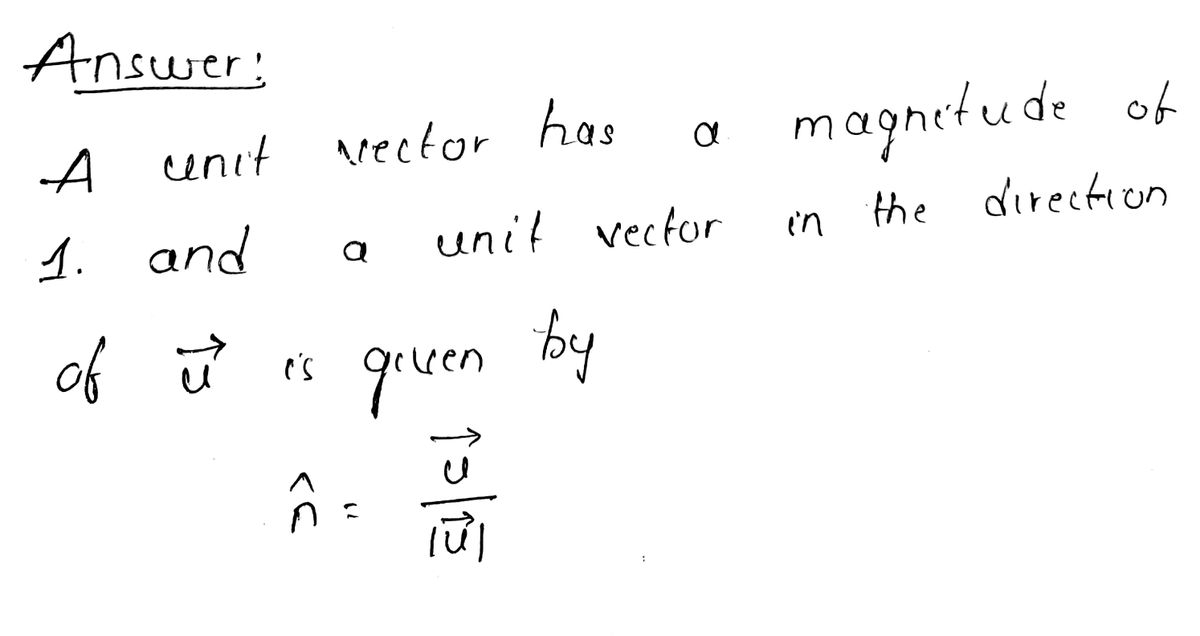 Answer:
A unit vector has a magnitude of
1. and a unit vector in the direction
of $\vec{u}$ is given by
$\hat{n} = \frac{\vec{u}}{|\vec{u}|}$